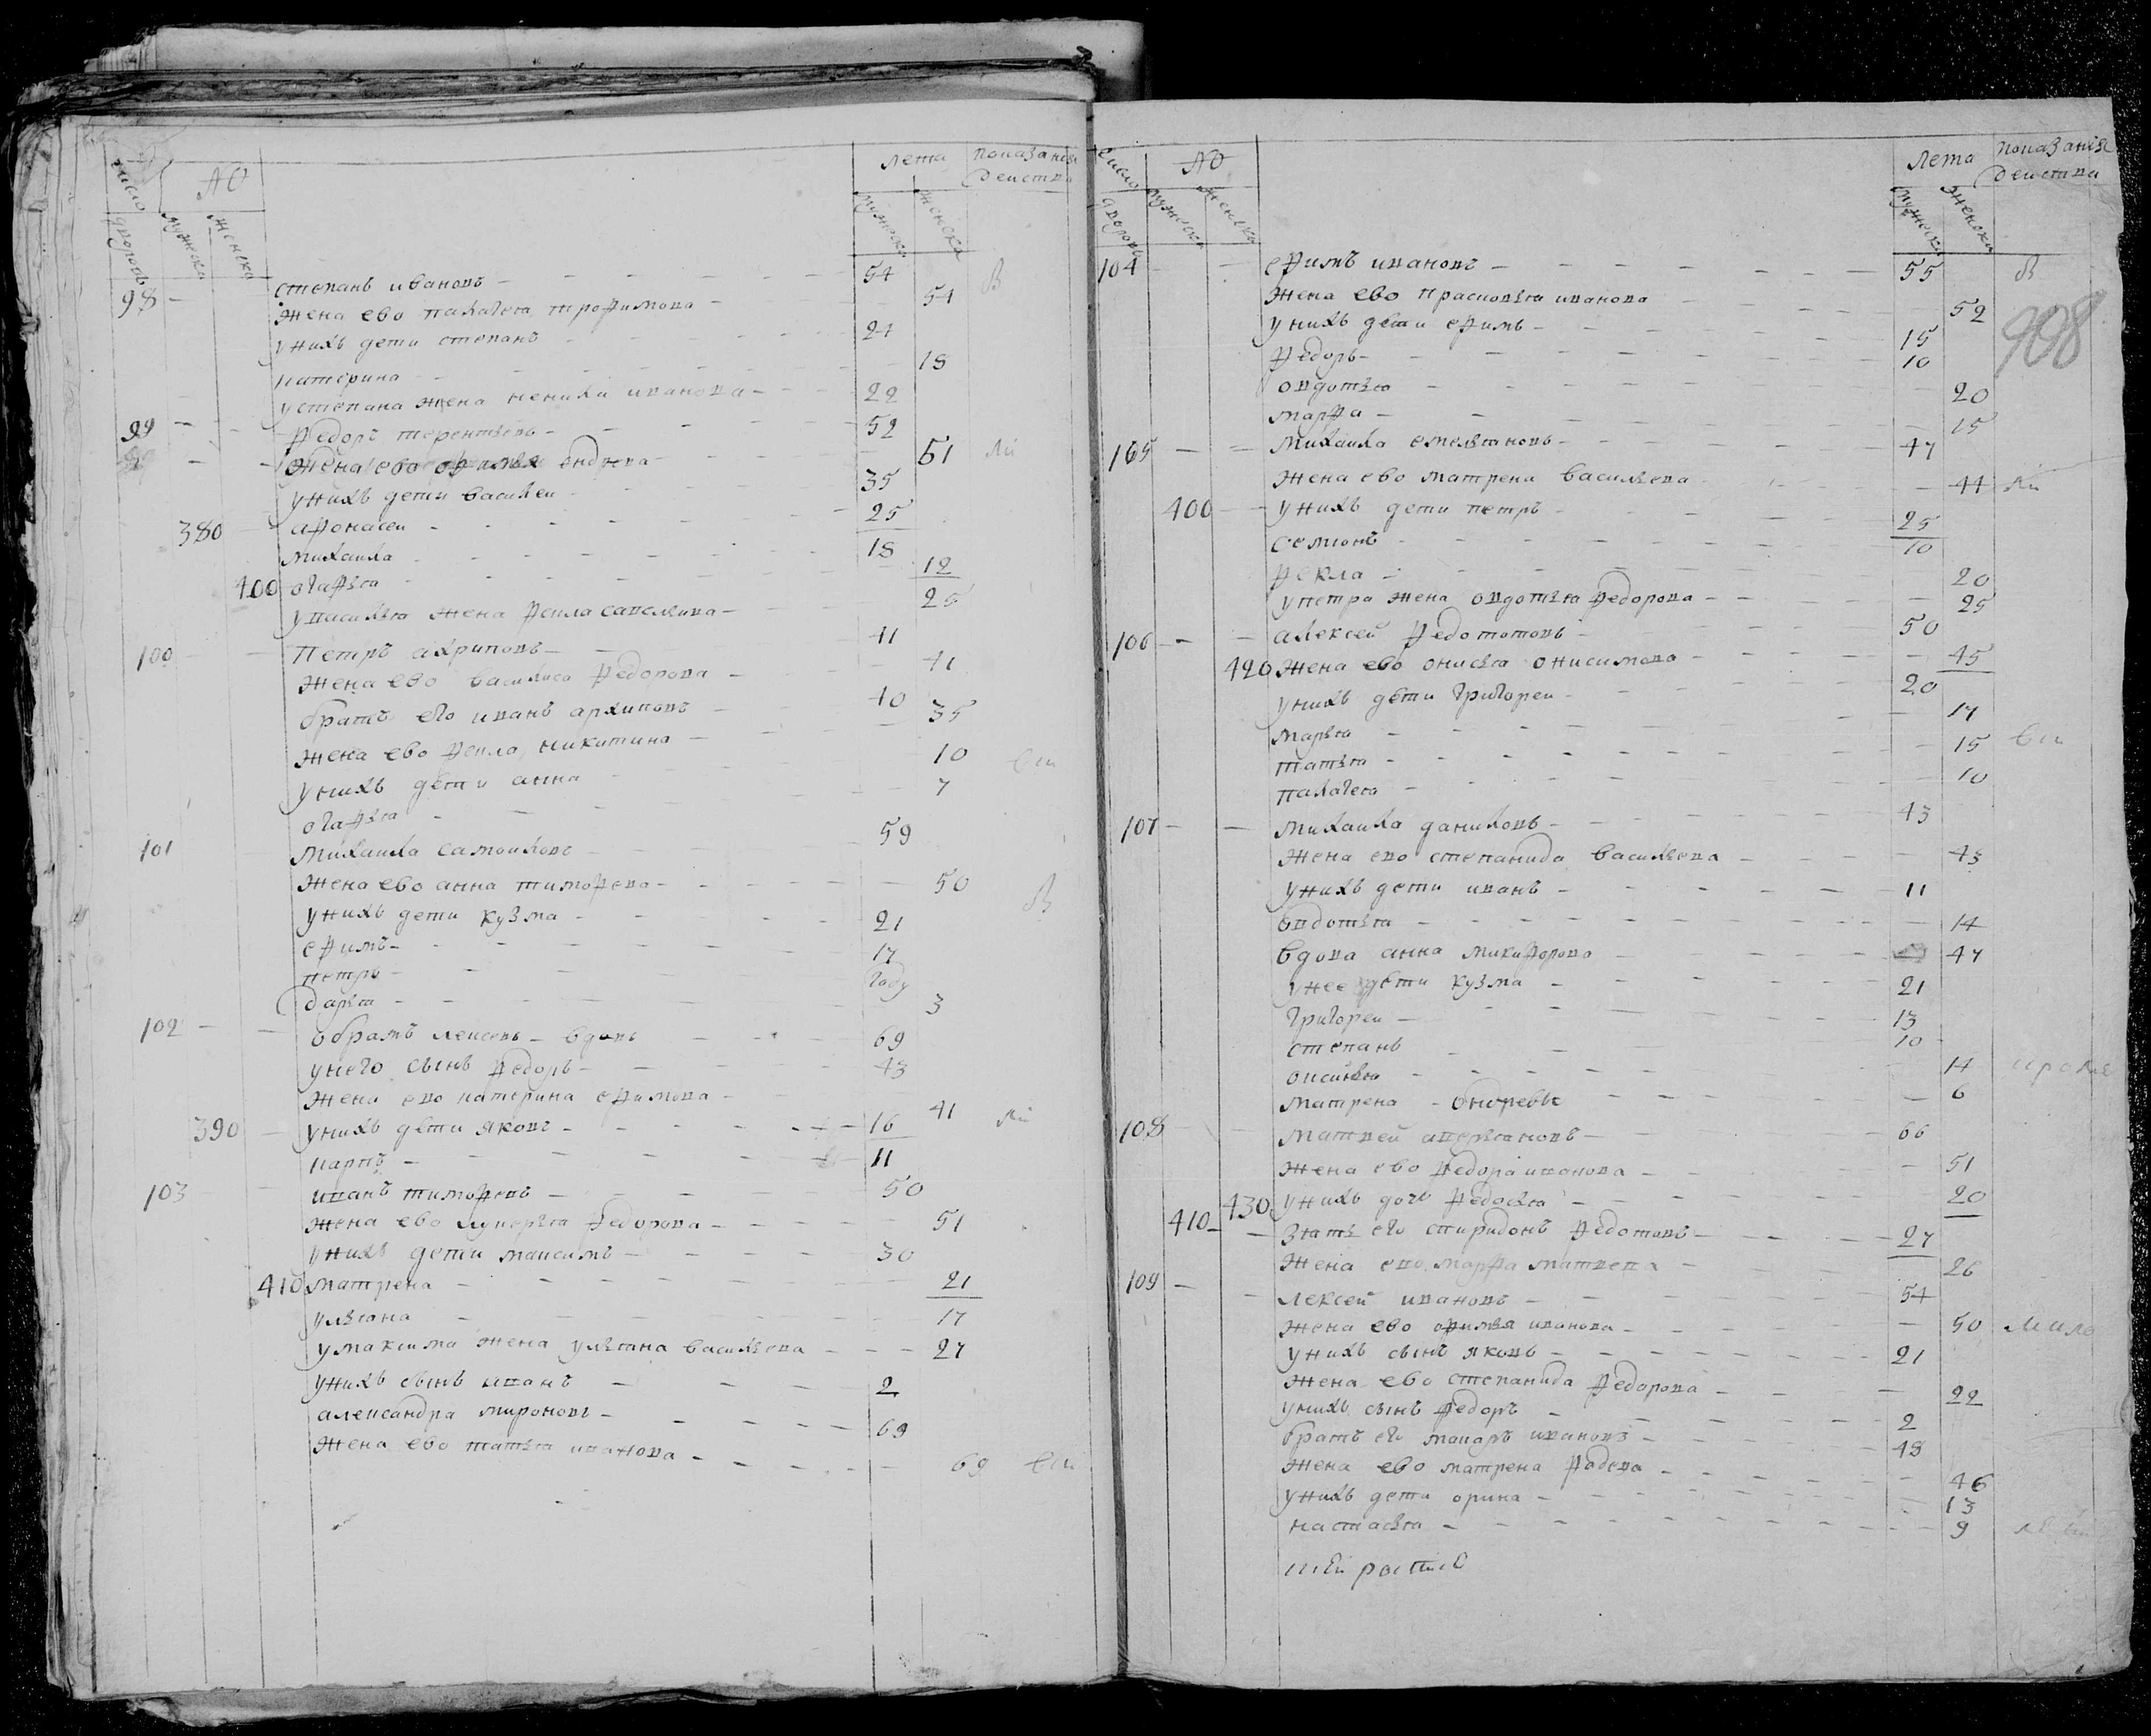 число дворовъ № мужеска женска лета мужеска женска показание действа
98 степанъ ивановъ 54 В
жена ево палагея трофимова 54
у нихъ дети степанъ 24
катерина 18
у степана жена ненила иванова 22
99 федоръ терентьевъ 52
жена ево офимья ендреева 51 Ли
у нихъ дети василеи 35
380 афонасеи 25
михаила 18
400 огафья 12
у василья жена фекла савельива 25
100 петръ архиповъ 41
жена ево василиса федорова 41
братъ его иванъ архиповъ 40
жена ево фекла никитина 35
у нихъ дети анна 10 вси
огафья 7
101 михаила самоиловъ 59
жена ево анна тимофеева 50 В
у нихъ дети кузма 21
ефимъ 17
петръ году
дарья 3
102 ебрамъ леисевъ вдовъ 69
у него сынъ федоръ 43
жена ево катерина ефимова 41 Ли
390 у нихъ дети яковъ 16
карпъ 11
103 иванъ тимофеевъ 50
жена ево лукерья федорова 51
у нихъ дети максимъ 30
410 матрена 21
ульяна 17
у максима жена ульяна васильева 27
у нихъ сынъ иванъ 2
александра мироновъ 69
жена ево татья иванова 69 вси
число дворовъ № мужеска женска лета мужеска женска показание действа
104 ефимъ ивановъ 55 В
жена ево прасковья иванова 52
908
у нихъ дети ефимъ 15
федоръ 10
овдотья 20
марфа 15
105 михаила емельяновъ 47
жена ево матрена васильева 44 Ли
400 у нихъ дети петръ 25
семионъ 10
фекла 20
у петра жена овдотья федорова 25
106 алексей федотовъ 50
420 жена ево онисья онисимова 45
у нихъ дети григореи 20
марья 17
татья 15 вси
палагея 10
107 михаила даниловъ 43
жена ево степанида васильева 43
у нихъ дети иванъ 11
овдотья 14
вдова анна микифорова 47
у нее дети кузма 21
григореи 13
степанъ 10
оксинья 14 кроме
матрена 6
108 матвей аверьяновъ 66
жена ево федора иванова 51
430 у нихъ дочь федосья 20
410 зять его спиридонъ федотовъ 27
жена ево марфа матвеева 26
109 лексей ивановъ 54
жена ево офимья иванова 50 мало
у нихъ сынъ яковъ 21
жена ево степанида федорова 22
у нихъ сынъ федоръ 2
братъ его макаръ ивановъ 48
жена ево матрена фадеева 46
у нихъ дети орина 13
настасья 9